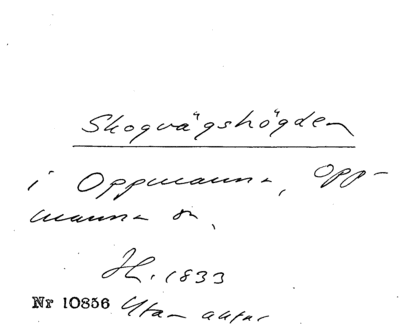 Skogvägshögden
i Oppmanna, Opp-
manna sn,
Jh. 1833
Nr 10856 Utan aktnr